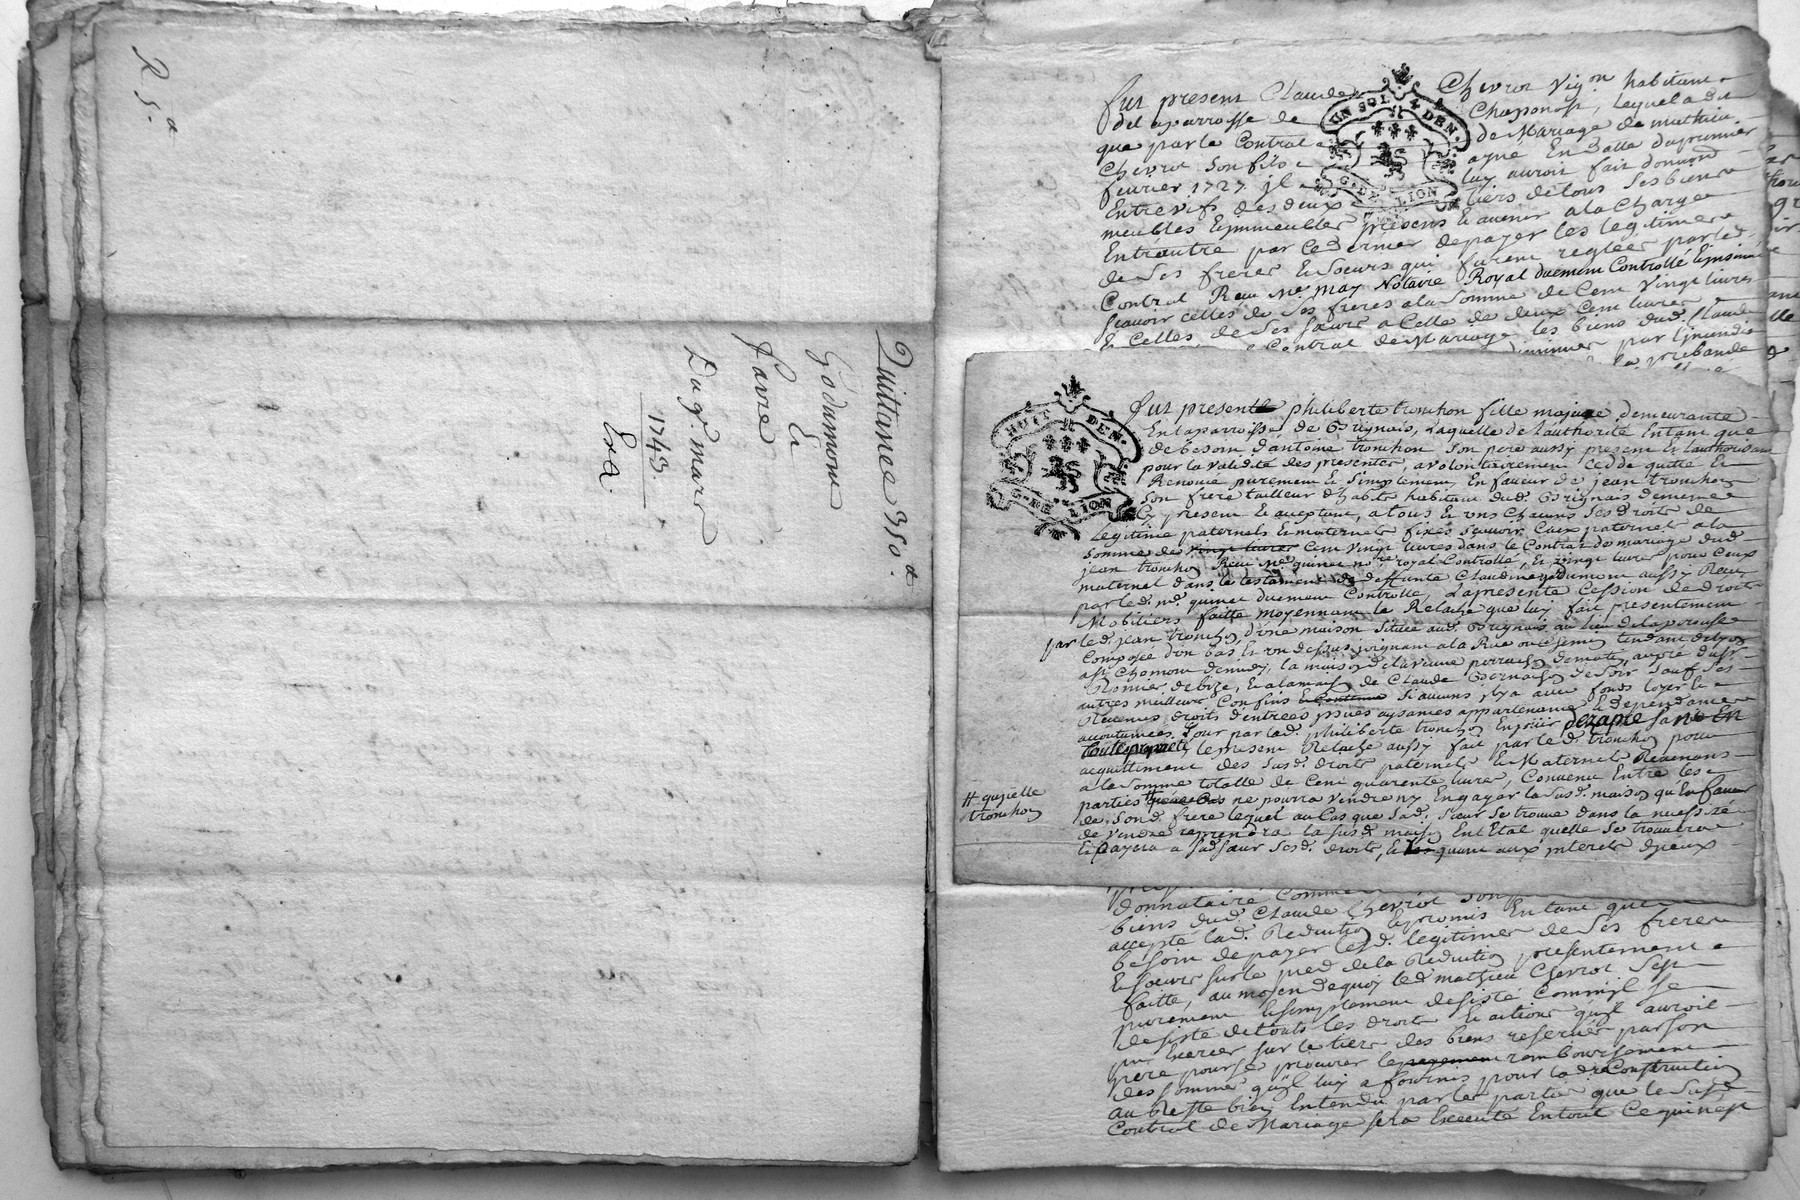 R 5.d
Quittance 350.d
Godammone
&
favre
Du 9e. mars
1743.
Exa.
UN SOL 4 DEN.
G. DE LION
fut present Claude Chevrot vig.on habitant
de la parroisse de Chaponost, lequel a dit
que par le Contrat de Mariage de mathieu
Chevrot son fils ayné En datte du premier
fevrier 1727. jl luy auroit fait donnation
Entrevifs des deux tiers de tous ses biens
meubles & jmmeubles presens & avenir a la Charge
Entrautre par ce dernier de payer les legitimes
de ses freres & soeurs qui furent reglées par led.
Contrat Receu Me. May Notaire Royal duement Controllé & jnsinué
scavoir celles de ses freres a la somme de Cent vingt livres
& celles de ses soeurs a Celle de deux Cent livres
Contrat de Mariage les biens dud. Claude
HUIT DEN.
G. DE LION
fut presente philiberte tronchon fille majeure demeurante
En la parroisse de Brignais, Laquelle de l'authorité Entant que
de besoin d'antoine tronchon son pere aussy present & l'authorisant
pour la validité des presentes, a volontairement cedde quitté &
Renoncé purement & simplement En faveur de jean tronchon
son frere tailleur d'habits habitant dud. Brignais dememe
Cy present & acceptant, a tous & uns Chacuns ses droits de
Legitime paternels & maternels fixés scavoir Ceux paternels a la
somme de vingt livres Cent vingt livres dans le Contrat de mariage dud.
jean tronchon Receu Me. quinet nore. royal Controllé, & vingt livres pour Ceux
maternel dans le testament de deffunte Claudine aussy Receu
par led. me. quinet duement Controllé, La presente Cession de droits
Mobiliers faitte moyennant le Relache que luy fait presentement
par led. jean tronchon, d'une maison située aud. Brignais au lieu de la
Composée d'un bas & un dessus joignant a la Rue ou Chemin tendant de Lyon
a St. Chomont de midy, la maison de la veuve
de bize, & la maison de Claude de soir sauf ses
autres meilleurs Confins & Contenue si aucuns y en a avec fonds loyer &
Revenus droits d'entrées jssues aysances appartenances & dependances
accoutumées. Pour par lad. philiberte tronchon En jouir
toutte proprieté le present Relache aussy fait par led. tronchon pour
acquittement des susd. droits paternels & Maternels Revenants
a la somme totalle de Cent quarente livres, Convenu Entre les
parties ne pourra vendre ny Engager la susd. maison qu'En faveur
de sond. frere lequel au Cas que sad. soeur se trouve dans la necessité
de vendre reprendra la susd. maison En l'Etat quelle se trouvera
& payera a sad. soeur sesd. droits, & quant aux jnterets d'jceux
# qu'jcelle
tronchon
donnataire Comme
biens dud. Claude Chevrot son
accepté lad. Reduction & promis En tant que
besoin de payer lesd. legitimes de ses freres
& soeurs sur le pied de la Reduction presentement
faitte, au moyen de quoy led. mathieu Chevrot s'est
purement & simplement desisté Comm'jl se
desiste de touts les droits & actions qu'jl auroit
pu Exercer sur le tiers des biens reservés par son
pere pour se procurer le payement remboursement
des somme qu'jl luy a fournis pour la de Construction
au Reste bien Entendu par les parties que le susd.
Contrat de Mariage sera Executé En tout Ce qui n'est